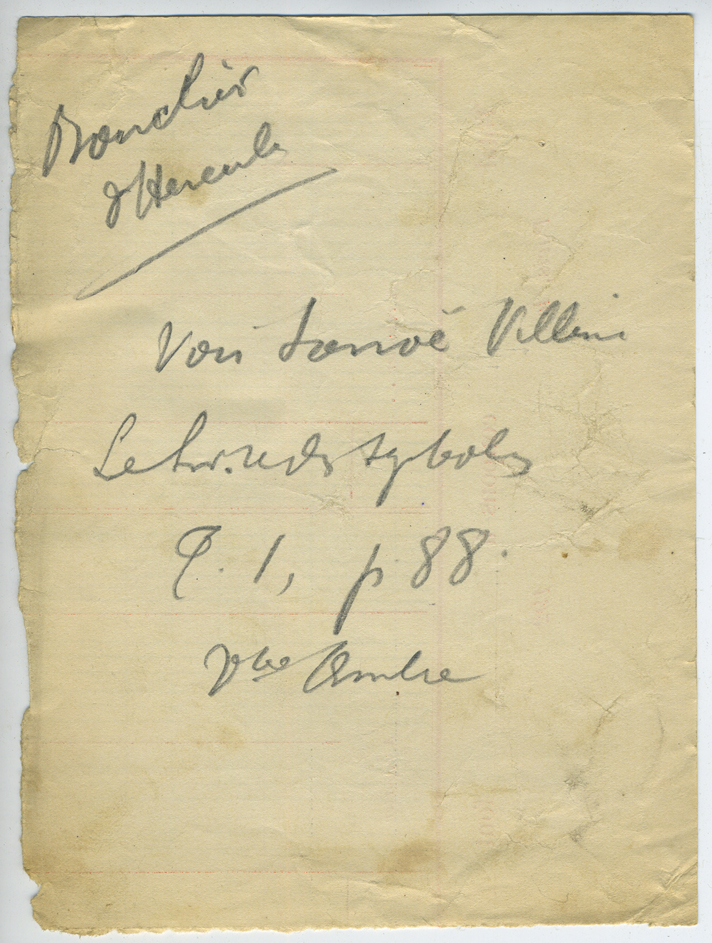 Bouclier
d'Hercule
Voir Lanoë Villène
Le Livre des Symboles
T. 1, p 88.
Vbo Ambre